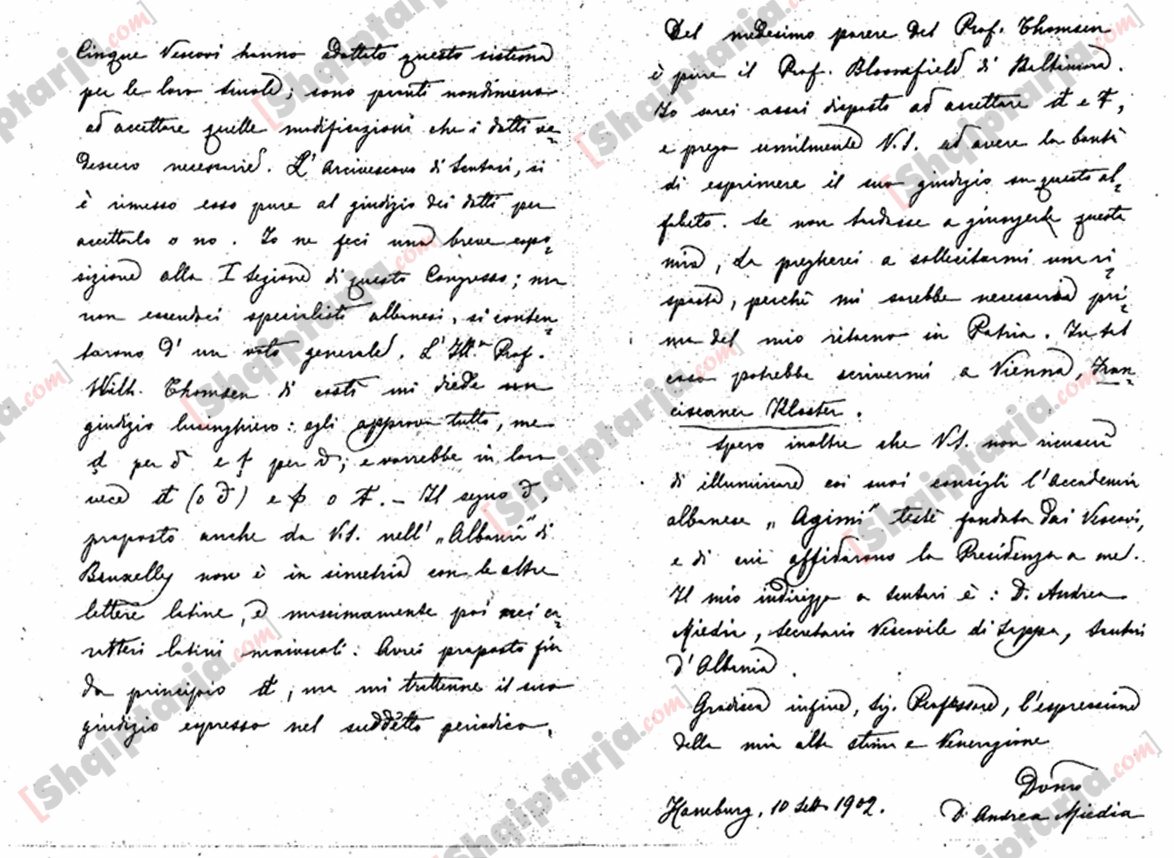 Cinque Vescovi hanno adottato questo sistema
per le loro scuole; sono pronti nondimeno
ad accettare quelle modificazioni che i dotti ve-
dessero necessarie. L'Arcivescovo di Scutari, si
è rimesso esso pure al giudizio dei dotti per
accettarlo o no. Io ne feci una breve espo-
sizione alla I sezione di questo Congresso; ma
non essendoci specialisti albanesi, si conten-
tarono d'un voto generale. L'Ill.mo Prof.
Wilh. Thomsen di costì mi diede un
giudizio lusinghiero: egli approva tutto, me-
per đ e per; e vorrebbe in loro
vece (o đ) e o. — Il segno đ,
proposto anche da V.S. nell' „Albania" di
Bruxelles non è in simetria con le altre
lettere latine, e massimamente poi nei ca-
ratteri latini maiuscoli. Avrei proposto fin
da principio; ma mi trattenne il suo
giudizio espresso nel suddetto periodico.
Del medesimo parere del Prof. Thomsen
è pure il Prof. Bloomfield di Baltimora.
Io sarei assai disposto ad accettare e,
e prego umilmente V.S. ad avere la bontà
di esprimere il suo giudizio su questo al-
fabeto. Se non tardasse a giungerLe questa
mia, La pregherei a sollecitarmi una ri-
sposta, perchè mi sarebbe necessaria pri-
ma del mio ritorno in Patria. In tal
caso potrebbe scrivermi a Vienna, Fran-
ciscaner Kloster.
Spero inoltre che V.S. non ricuserà
di illuminare coi suoi consigli l'Accademia
albanese „Agimi" testè fondata dai Vescovi,
e di cui affidarono la Presidenza a me.
Il mio indirizzo a Scutari è: D. Andrea
Miedia, Secretario Vescovile di Sappa, Scutari
d'Albania.
Gradisca infine, Sig. Professore, l'espressione
della mia alta stima e Venerazione
Hamburg, 10 Sett. 1902.
D. Andrea Miedia
[Shqiptarja.com]